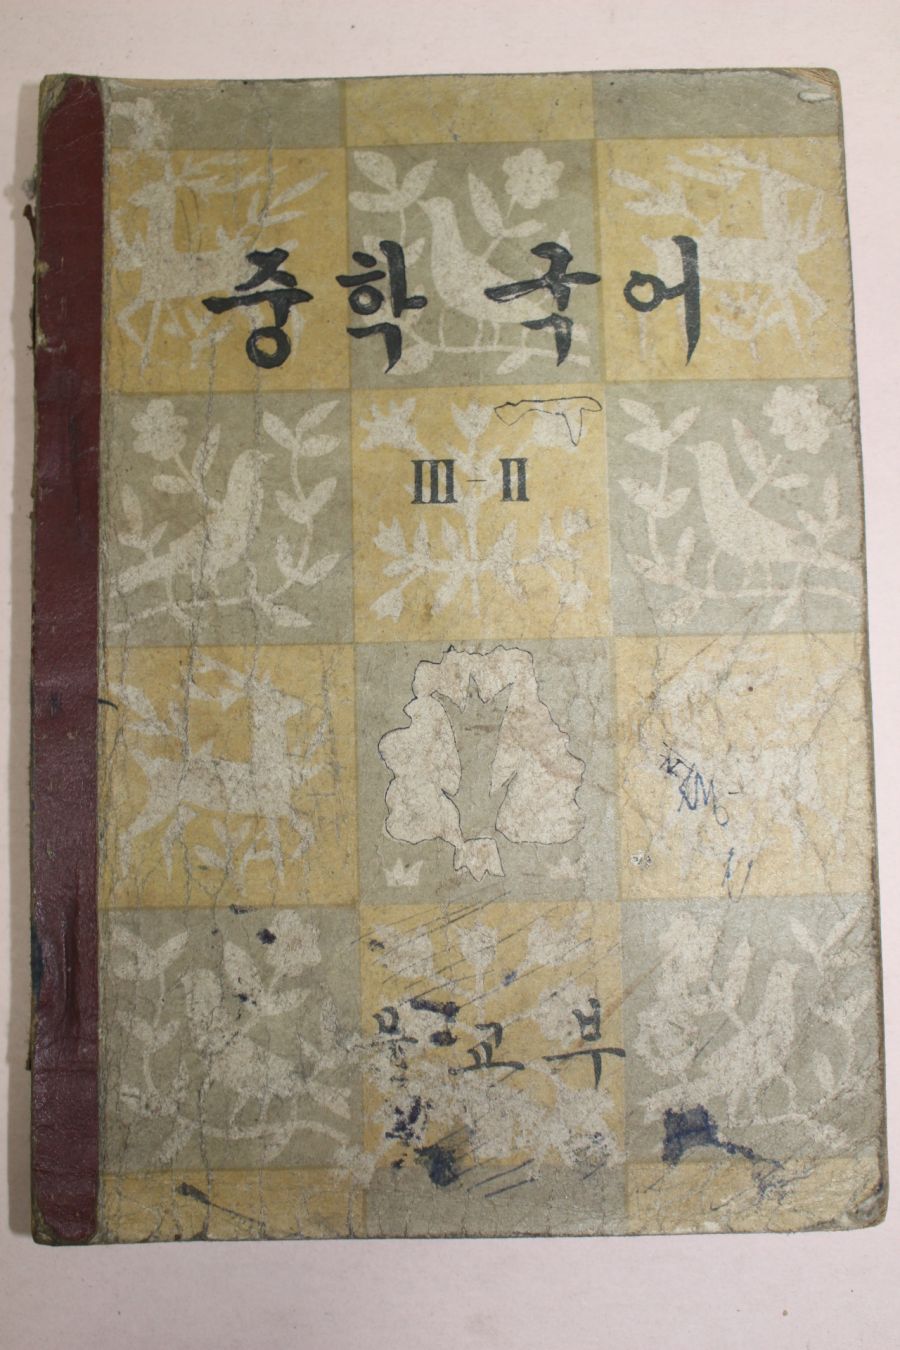 중학 국어
III-II
문교부